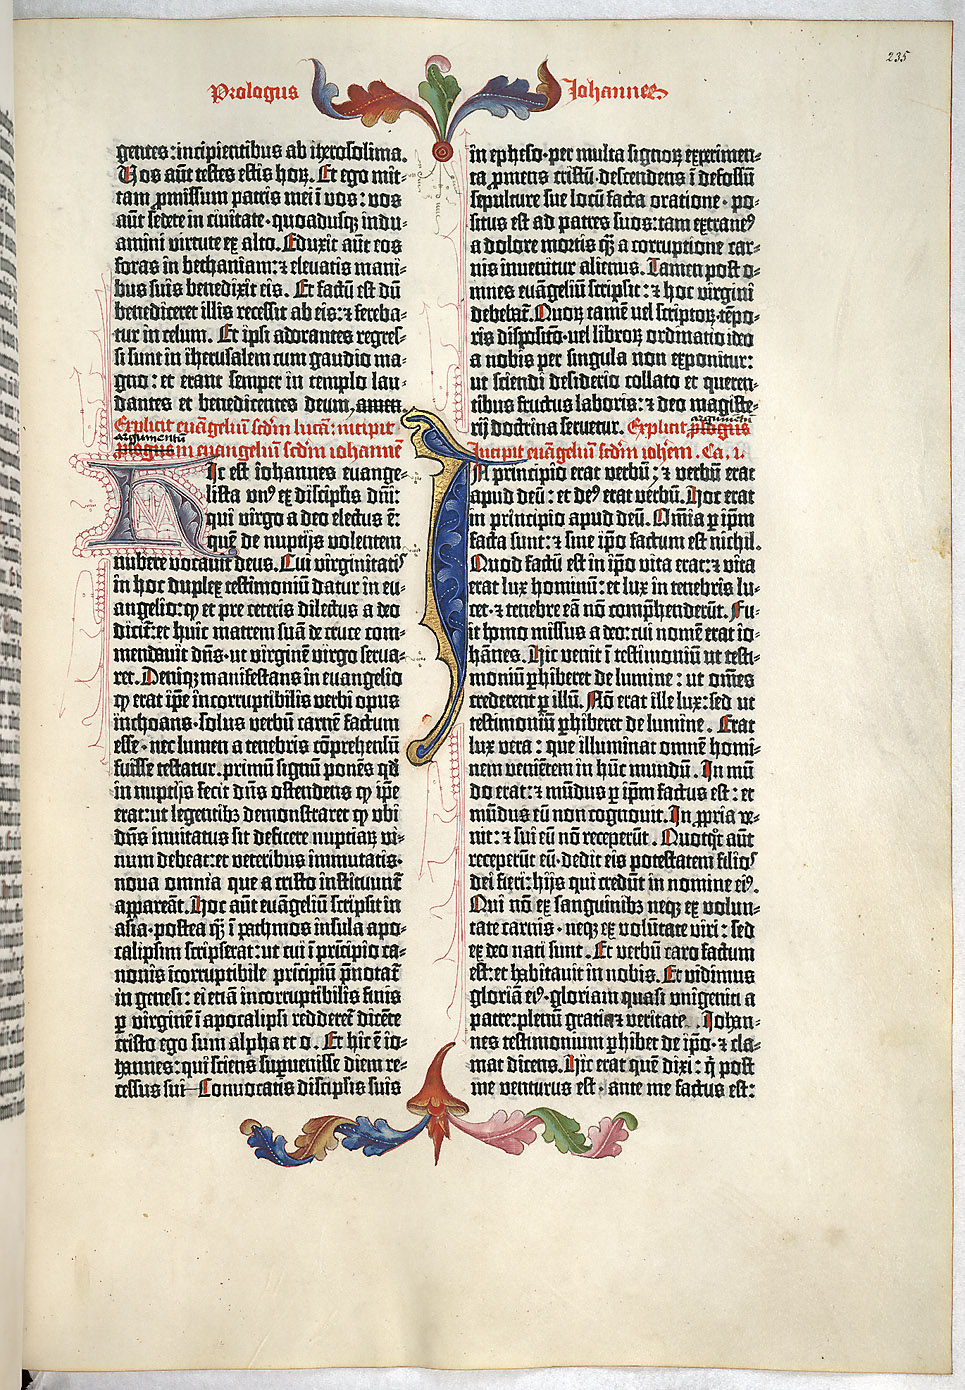 235
Prologus
Johannes
gentes: incipientibus ab iherosolima.
Vos aūt testes estis hoꝝ. Et ego mit-
tam ꝓmissum patris mei ī vos: vos
aūt sedete in civitate · quoadusqꝫ indu-
amini virtute ex alto. Eduxit aūt eos
foras in bethaniam: ⁊ elevatis mani-
bus suis benedixit eis. Et factū est dū
benediceret illis recessit ab eis: ⁊ fereba-
tur in celum. Et ipsi adorantes regres-
si sunt in iherusalem cum gaudio ma-
gno: et erant semper in templo lau-
dantes et benedicentes deum, amen.
Explicit euāgeliū scd̄m lucā: incipit
argumentū
ꝓlogus in euangeliū scd̄m iohannē
Hic est iohannes euange-
lista vnꝰ ex discipl̄is dn̄i:
qui virgo a deo electus ē:
quē de nuptijs volentem
nubere vocavit deus. Cui virginitatiꝰ
in hoc duplex testimoniū datur in eu-
angelio: ꝙ et pre ceteris dilectus a deo
dicit̄: et huic matrem suā de cruce com-
mendavit dn̄s · ut virginē virgo serva-
ret. Deniqꝫ manifestans in euangelio
ꝙ erat ip̄e incorruptibilis verbi opus
inchoans · solus verbū carnē factum
esse · nec lumen a tenebris cōprehensū
fuisse testatur. primū signū ponēs qd̄
in nuptijs fecit dn̄s ostendens ꝙ ip̄e
erat: ut legentibꝫ demonstraret ꝙ vbi
dn̄s invitatus sit deficere nuptiaꝝ vi-
num debeat: et veteribus immutatis ·
nova omnia que a cristo instituunt̄
appareāt. Hoc aūt euāgeliū scripsit in
asia · postea qꝫ̄ ī pathmos insula apo-
calipsim scripserat: ut cui ī pricipio ca-
nonis īcorruptibile prīcipiū p̄notat̄
in genesi: ei etiā incorruptibilis finis
ꝑ virginē ī apocalipsi redderet̄ dicēte
cristo ego sum alpha et o. Et hic ē io-
hannes: qui sciens supervenisse diem re-
cessus sui Convocatis discipl̄is suis
in epheso · per multa signoꝝ experimen-
ta ꝓmens cristū · descendens ī defossū
sepulture sue locū facta oratione · po-
situs est ad patres suos: tam extraneꝰ
a dolore mortis qꝫ̄ a corruptione car-
nis invenitur alienus. Tamen post o-
mnes euāgeliū scripsit: ⁊ hoc virgini
debebat̄. Quoꝝ tamē vel scriptoꝝ tēpo-
ris disposito · vel libroꝝ ordinatio ideo
a nobis per singula non exponitur:
ut sciendi desiderio collato et queren-
tibus fructus laboris: ⁊ deo magiste-
argumentū
rij doctrina servetur. Explicit ꝓlogus
Incipit euāgeliū scd̄m ioh̄em. Ca. i.
In principio erat verbū; ⁊ verbū erat
apud deū: et deꝰ erat verbū. Hoc erat
in principio apud deū. Omīa ꝑ ip̄m
facta sunt: ⁊ sine ip̄o factum est nichil.
Quod factū est in ip̄o vita erat: ⁊ vita
erat lux hominū: et lux in tenebris lu-
cet · ⁊ tenebre eā nō comp̄henderūt. Fu-
it homo missus a deo: cui nomē erat io-
hānes. Hic venit ī testimoniū ut testi-
moniū ꝑhiberet de lumine: ut om̄es
crederent ꝑ illū. Nō erat ille lux: sed ut
testimoniū ꝑhiberet de lumine. Erat
lux vera: que illuminat omnē homi-
nem veniētem in hūc mundū. In mū
do erat: ⁊ mūdus ꝑ ip̄m factus est: et
mūdus eū non cognovit. In ꝓpria ve-
nit: ⁊ sui eū nō receperūt. Quotqt̄ aūt
receperūt eū · dedit eis potestatem filioꝝ
dei fieri: hijs qui credūt in nomine eiꝰ.
Qui nō ex sanguinibꝫ neqꝫ ex volun-
tate carnis · neqꝫ ex volūtate viri: sed
ex deo nati sunt. Et verbū caro factum
est: et habitavit in nobis. Et vidimus
gloriā eiꝰ · gloriam quasi vnigeniti a
patre: plenū gratia ⁊ veritate. Johan-
nes testimonium ꝑhibet de ip̄o · ⁊ cla-
mat dicens. Hic erat quē dixi: q̄ post
me venturus est · ante me factus est: